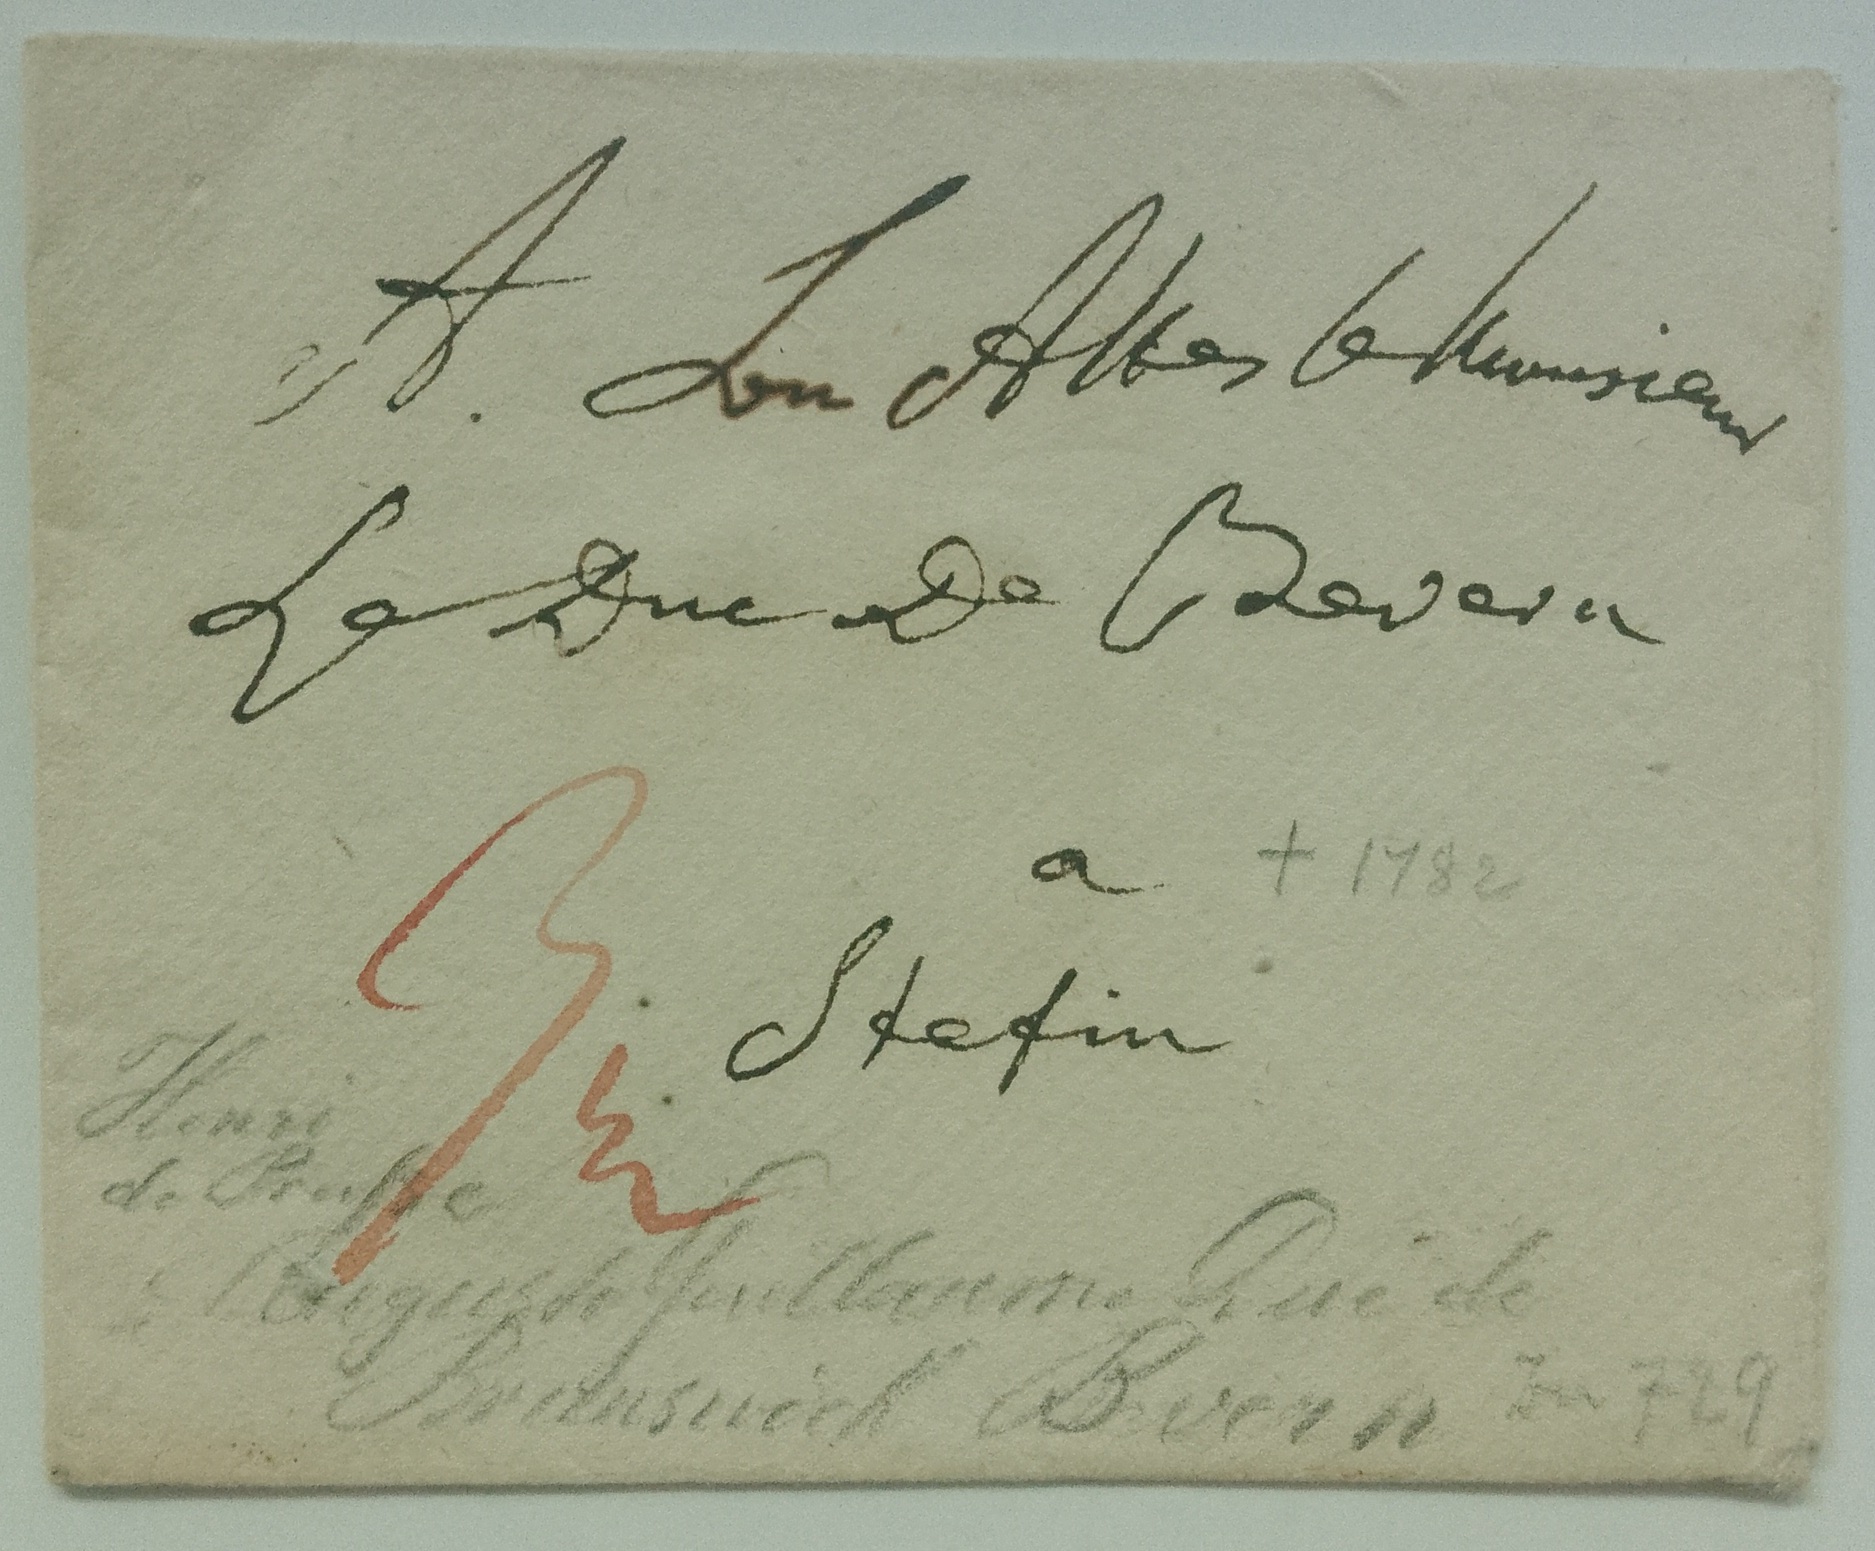 A. Son Altes le Monsieur
Le Duc De Bevern
a
+ 1782
Stetin
Henri
de Prusse
Auguste Guillaume Duc de
Brunswick Bevern
729